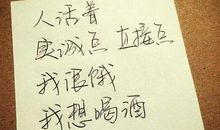 人活着
实诚点 直接点
我很饿
我想喝酒